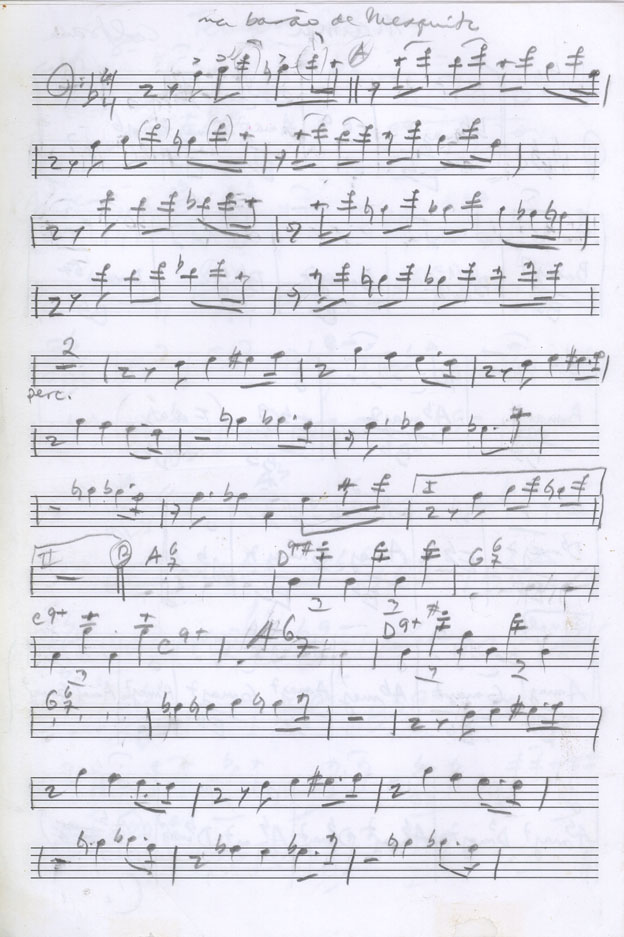 na barão de Mesquita
A
2
perc.
I
II B A 6 7 D9+ G 6 7
3 3
C9+ C9+ A 6 7 D9+
3 3 3
G 6 7